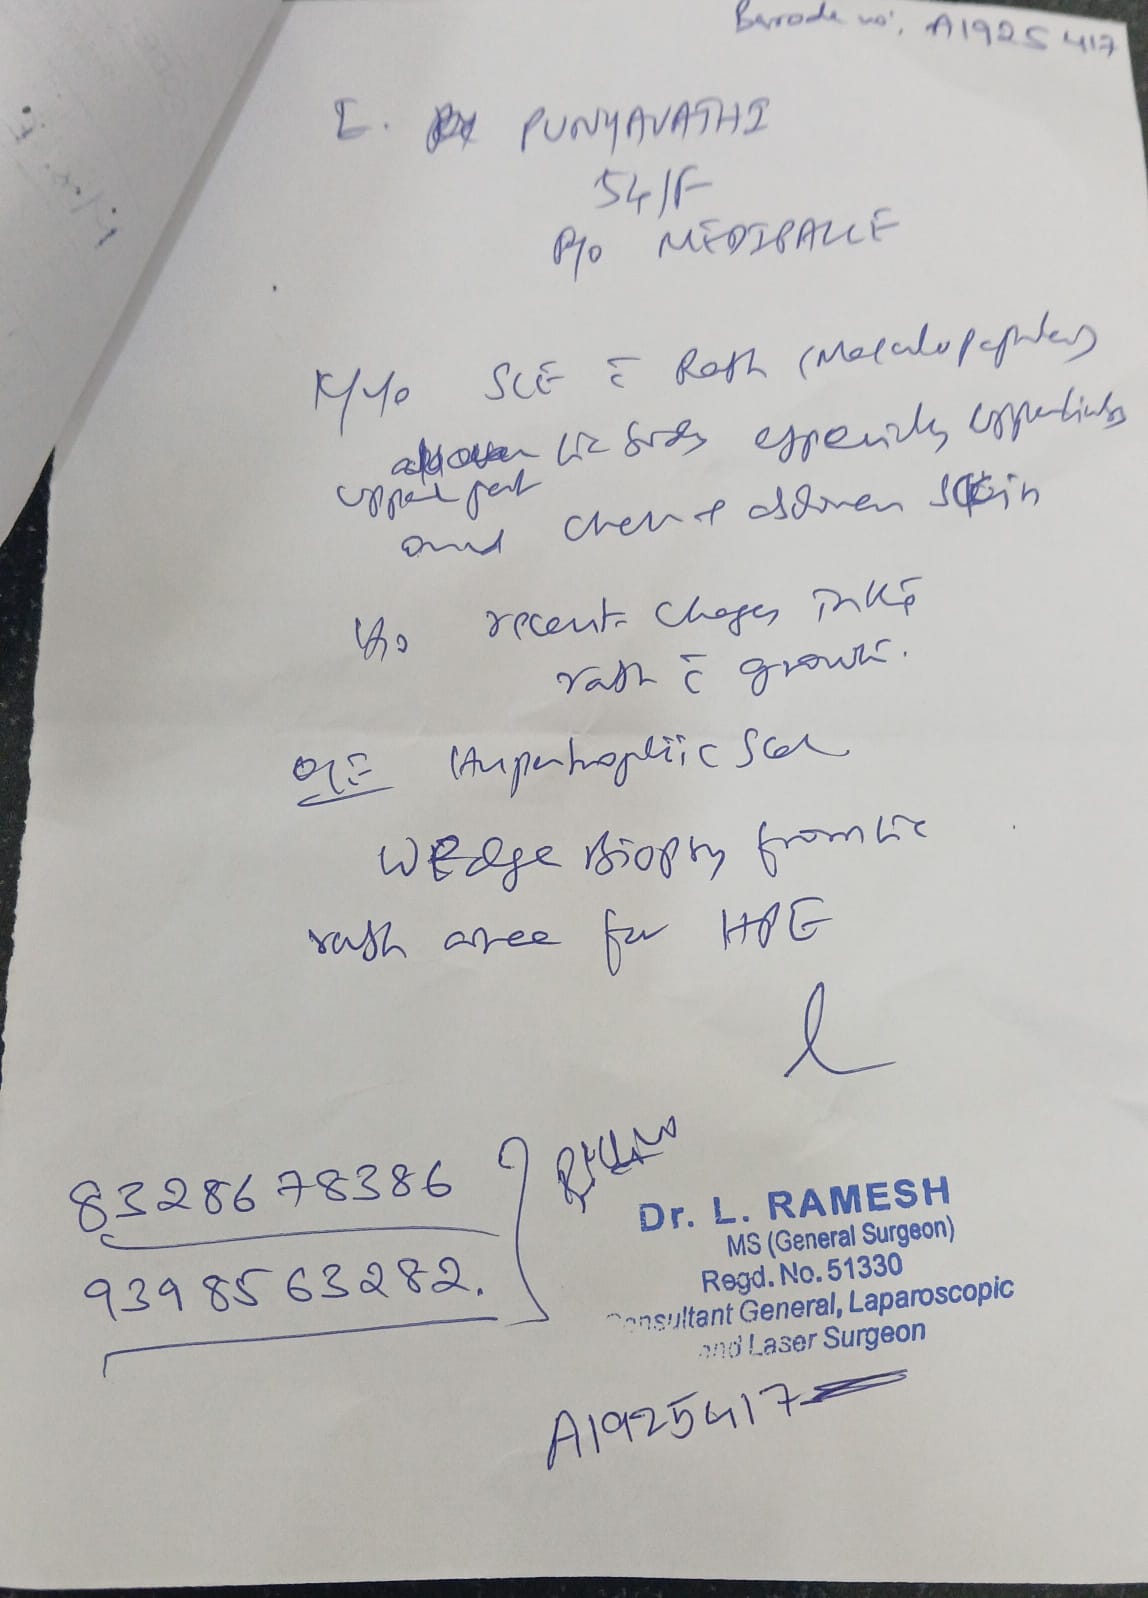 Barcode no. A1925417
E. PUNYAVATHI
54/F
P/o MEDIPALLE
K/c/o SLE c̄ Rash (Maculopapular)
all over the body especially upper limbs
upper part
and chest & abdomen skin
H/o recent changes in the
rash c̄ growth.
O/E Hypertrophic Scar
Wedge Biopsy from the
rash area for HPE
8328678386
9398563282.
Dr. L. RAMESH
MS (General Surgeon)
Regd. No. 51330
Consultant General, Laparoscopic
and Laser Surgeon
A1925417